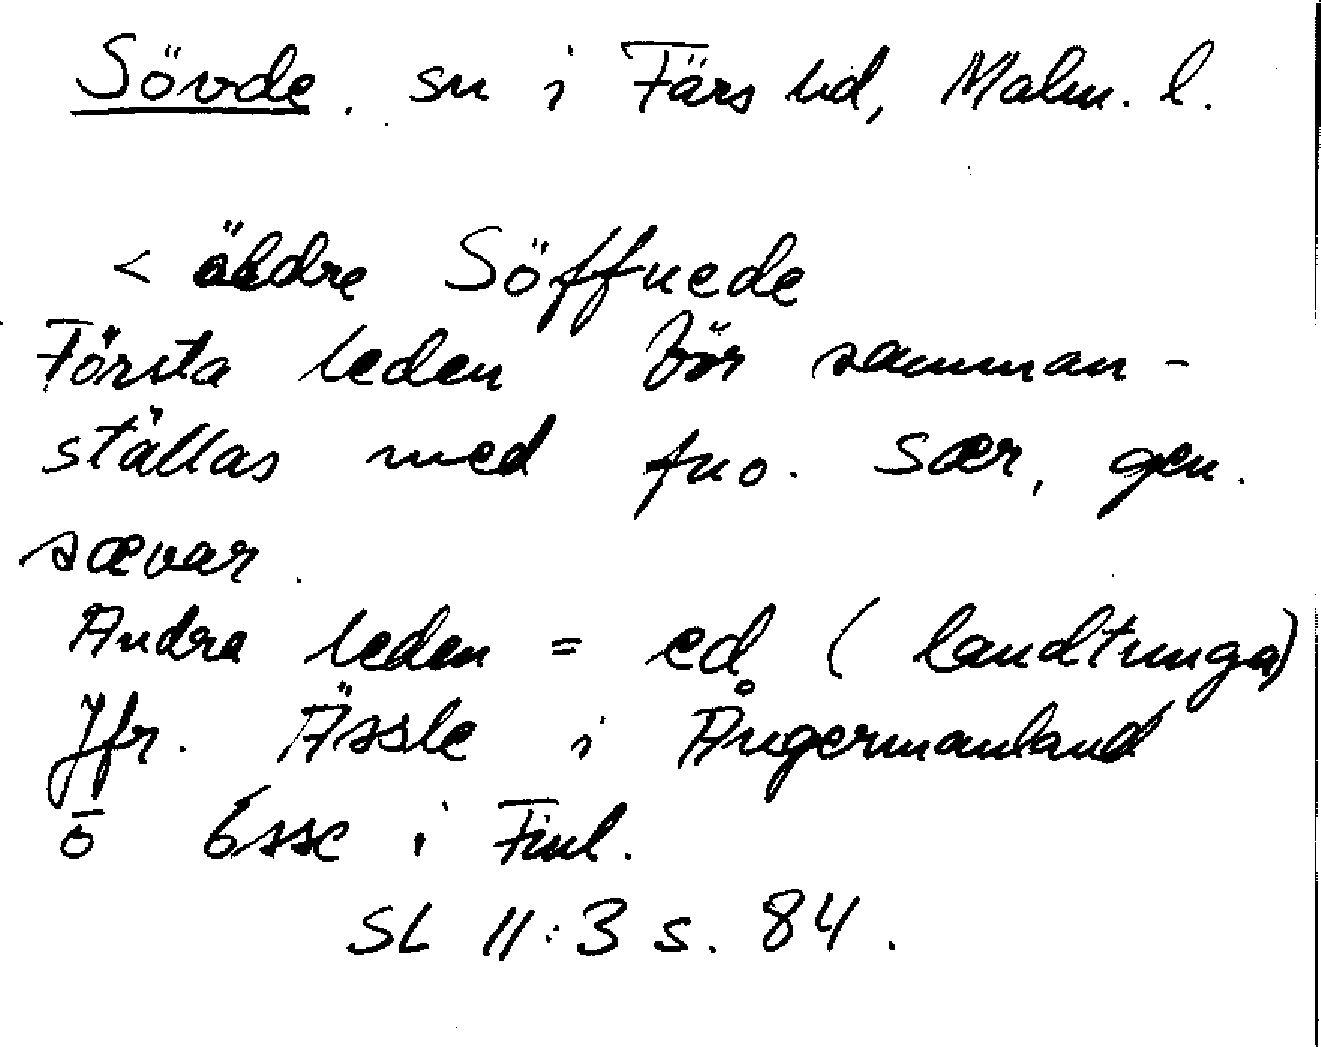 Sövde. sn i Färs hd, Malm. l.
< äldre Söffuede
Första leden bör samman-
ställas med fno. sær, gen.
sævar.
Andra leden = ed (landtunga)
Jfr. Ässle i Ångermanland
o Esse i Finl.
SL 11:3 s. 84.